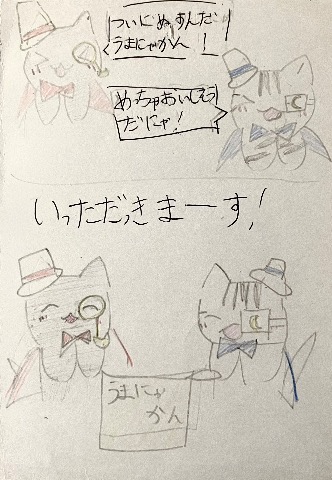 ついにぬすんだ
うまにゃかん!
めっちゃおいしそう
だにゃ!
いっただっきまーす!
うまにゃ
かん